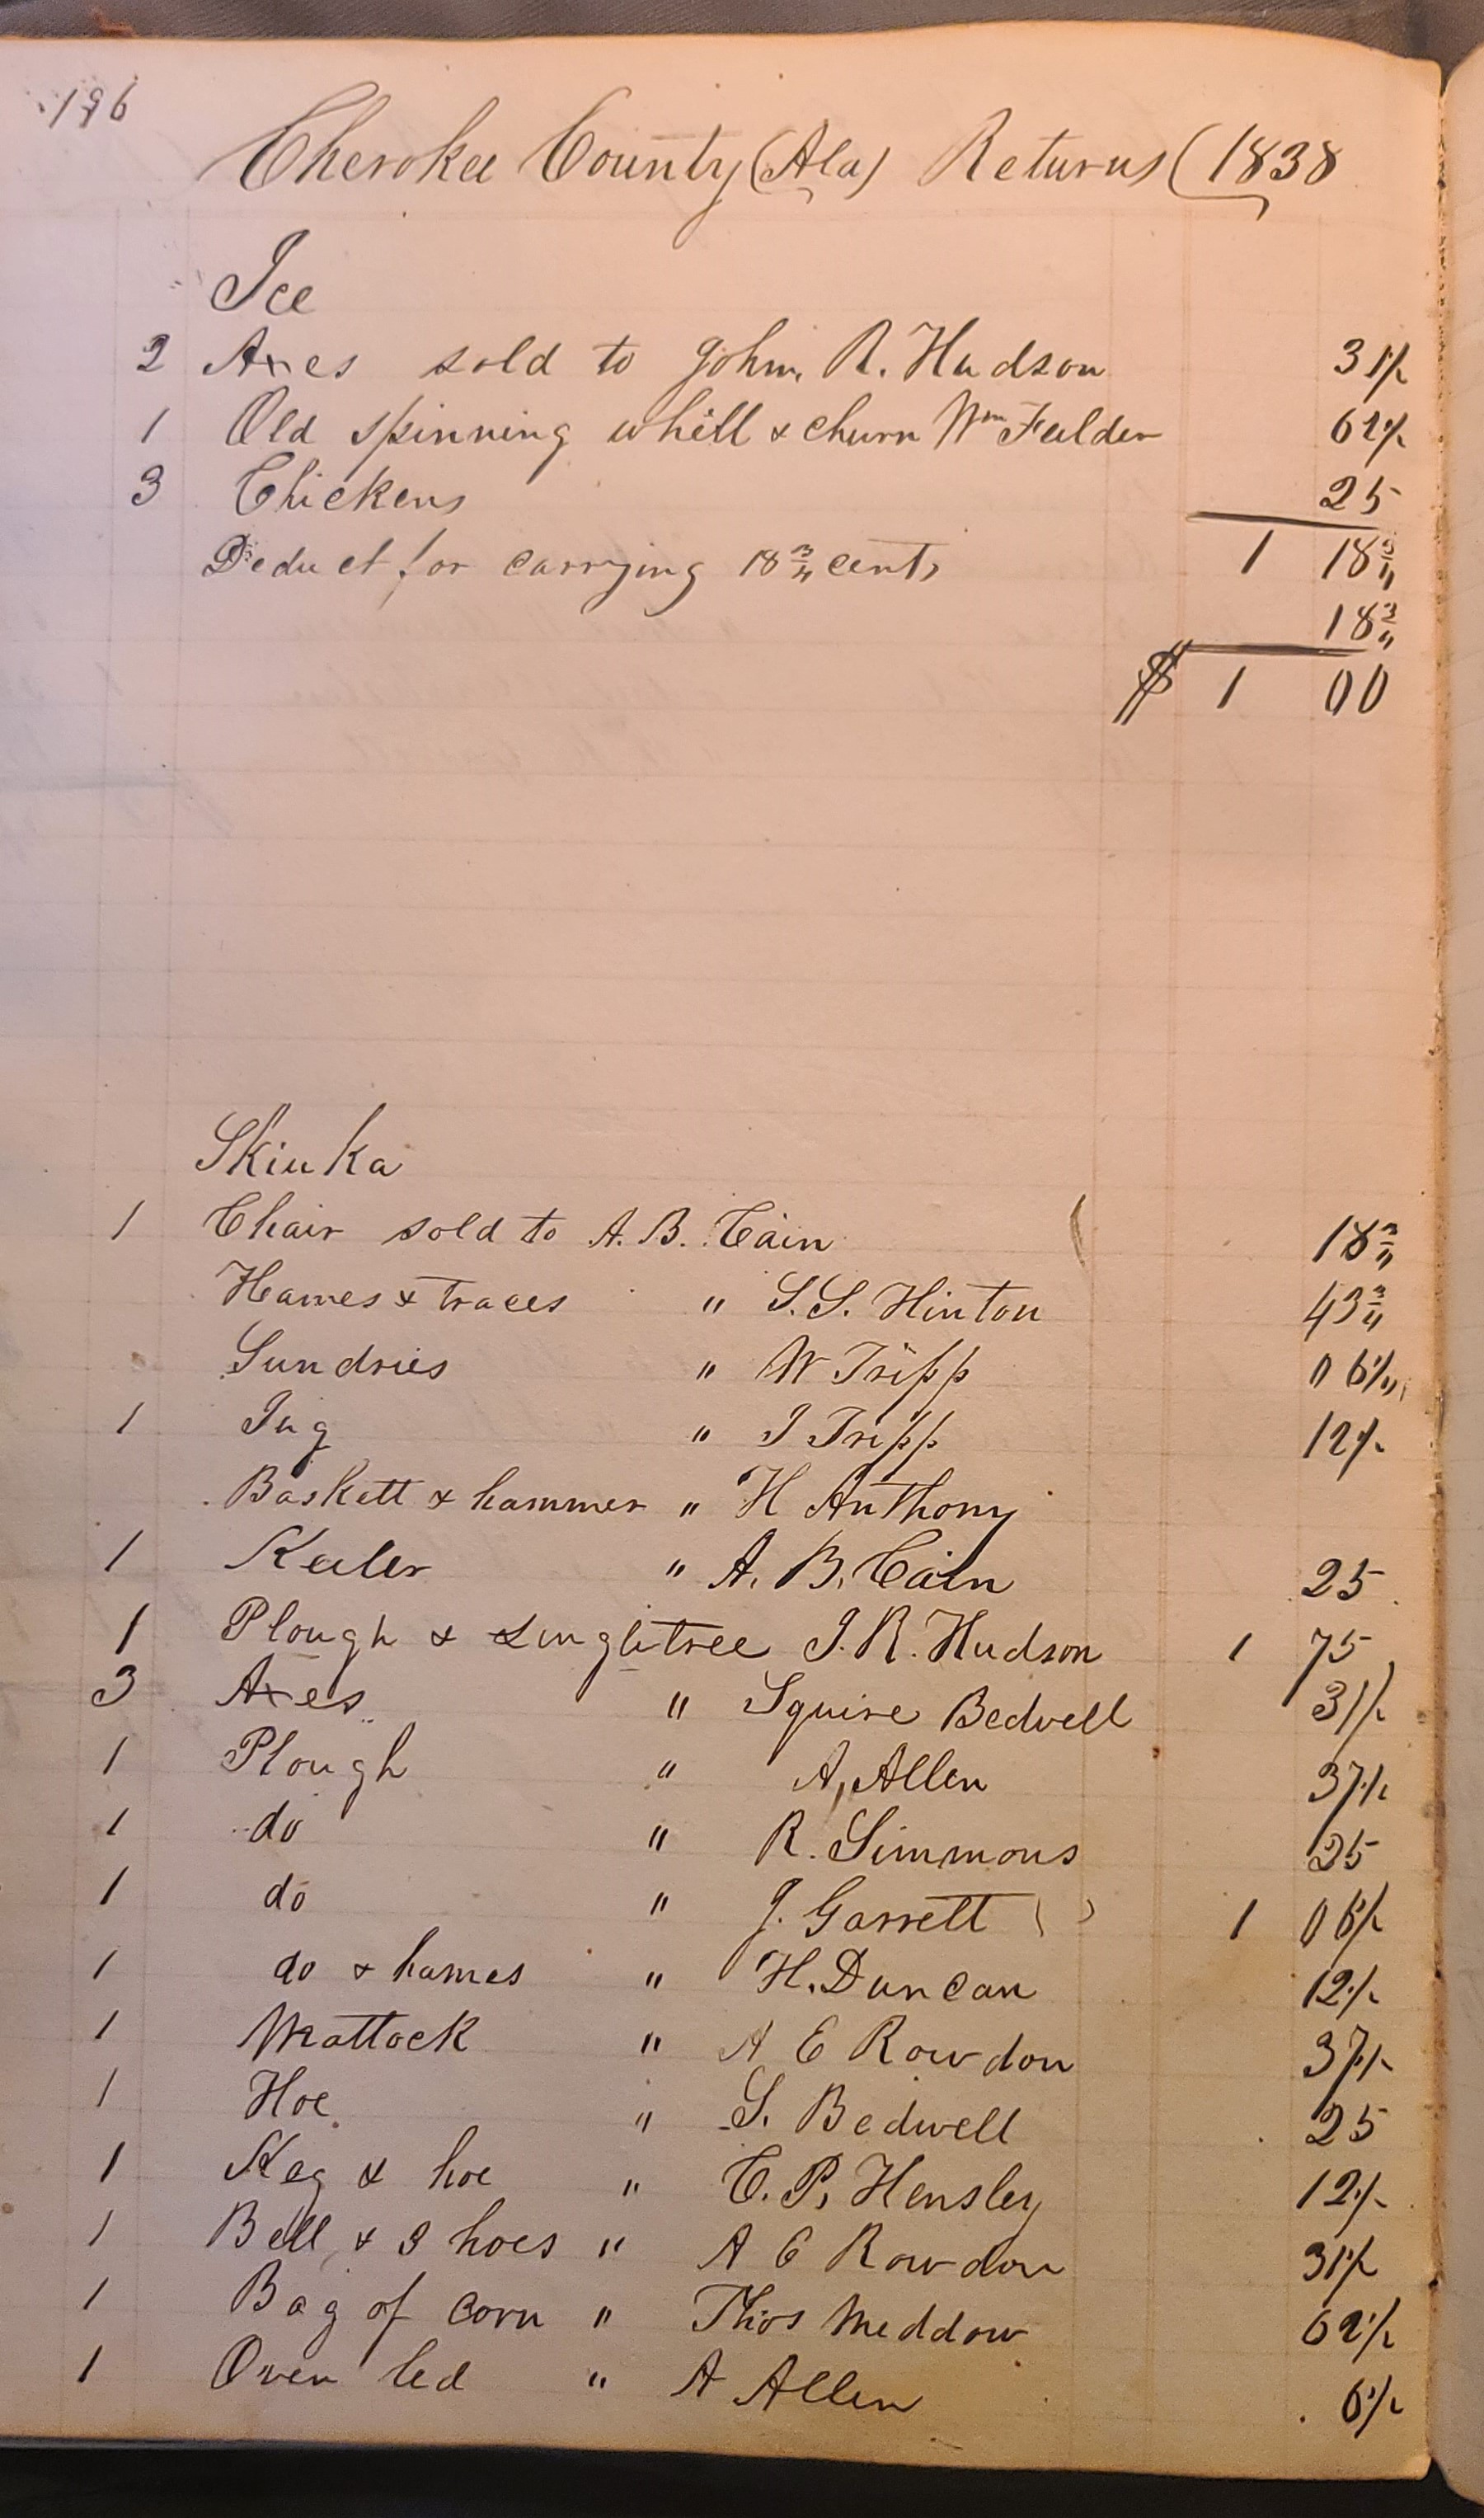 196
Cherokee County (Ala) Returns (1838
Ice
2 Axes sold to John R. Hudson 31¼
1 Old spinning whill & churn Wm Feilder 62½
3 Chickens 25
Deduct for carrying 18¾ cents 1 18¾
18¾
$ 1 00
Skiuka
1 Chair sold to A. B. Cain 18¾
Hames & traces " S. S. Hinton 43¾
Sundries " W Tripp 06¼
1 Jug " J Tripp 12½
Baskett & hammer " H Anthony
1 Keeler " A. B. Cain 25
1 Plough & Singletree J. R. Hudson 1 75
3 Axes " Squire Bedwell 31¼
1 Plough " A. Allen 37½
1 do " R. Simmons 25
1 do " J. Garrett 1 06¼
1 do & hames " H. Duncan 12½
1 Mattock " A E Rowdon 37½
1 Hoe " S. Bedwell 25
1 Keg & hoe " C. P. Hensley 12½
1 Bell & 3 hoes " A E Rowdon 31¼
1 Bag of corn " Thos Meddow 62½
1 Oven led " A Allen 6¼